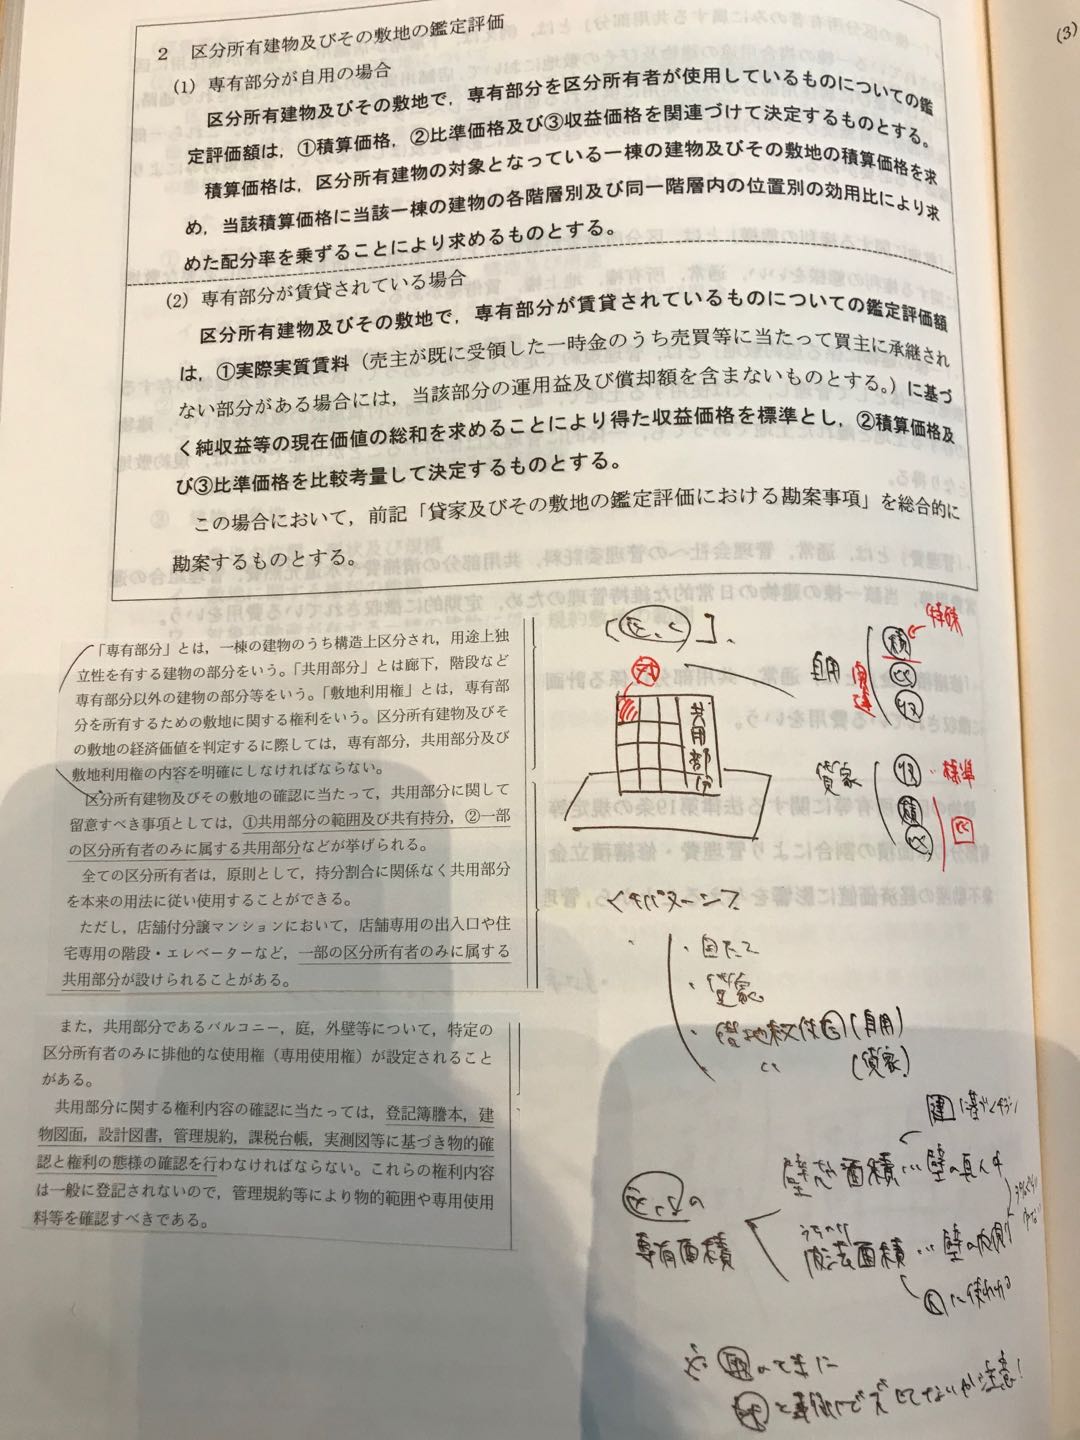 2 区分所有建物及びその敷地の鑑定評価
(1) 専有部分が自用の場合
区分所有建物及びその敷地で，専有部分を区分所有者が使用しているものについての鑑
定評価額は，①積算価格，②比準価格及び③収益価格を関連づけて決定するものとする。
積算価格は，区分所有建物の対象となっている一棟の建物及びその敷地の積算価格を求
め，当該積算価格に当該一棟の建物の各階層別及び同一階層内の位置別の効用比により求
めた配分率を乗ずることにより求めるものとする。
(2) 専有部分が賃貸されている場合
区分所有建物及びその敷地で，専有部分が賃貸されているものについての鑑定評価額
は，①実際実質賃料（売主が既に受領した一時金のうち売買等に当たって買主に承継され
ない部分がある場合には，当該部分の運用益及び償却額を含まないものとする。）に基づ
く純収益等の現在価値の総和を求めることにより得た収益価格を標準とし，②積算価格及
び③比準価格を比較考量して決定するものとする。
この場合において，前記「貸家及びその敷地の鑑定評価における勘案事項」を総合的に
勘案するものとする。
「専有部分」とは，一棟の建物のうち構造上区分され，用途上独
立性を有する建物の部分をいう。「共用部分」とは廊下，階段など
専有部分以外の建物の部分等をいう。「敷地利用権」とは，専有部
分を所有するための敷地に関する権利をいう。区分所有建物及びそ
の敷地の経済価値を判定するに際しては，専有部分，共用部分及び
敷地利用権の内容を明確にしなければならない。
区分所有建物及びその敷地の確認に当たって，共用部分に関して
留意すべき事項としては，①共用部分の範囲及び共有持分，②一部
の区分所有者のみに属する共用部分などが挙げられる。
全ての区分所有者は，原則として，持分割合に関係なく共用部分
を本来の用法に従い使用することができる。
ただし，店舗付分譲マンションにおいて，店舗専用の出入口や住
宅専用の階段・エレベーターなど，一部の区分所有者のみに属する
共用部分が設けられることがある。
また，共用部分であるバルコニー，庭，外壁等について，特定の
区分所有者のみに排他的な使用権（専用使用権）が設定されること
がある。
共用部分に関する権利内容の確認に当たっては，登記簿謄本，建
物図面，設計図書，管理規約，課税台帳，実測図等に基づき物的確
認と権利の態様の確認を行わなければならない。これらの権利内容
は一般に登記されないので，管理規約等により物的範囲や専用使用
料等を確認すべきである。
対
共用部分
自用
関連
積
比
収
特殊
貸家
収
積
比
標準
比
・自たて
・貸家
(自用)
(貸家)
建に基づく
壁芯面積…壁の真ん中
専有面積
うちのり
内法面積…壁の内側
(3)